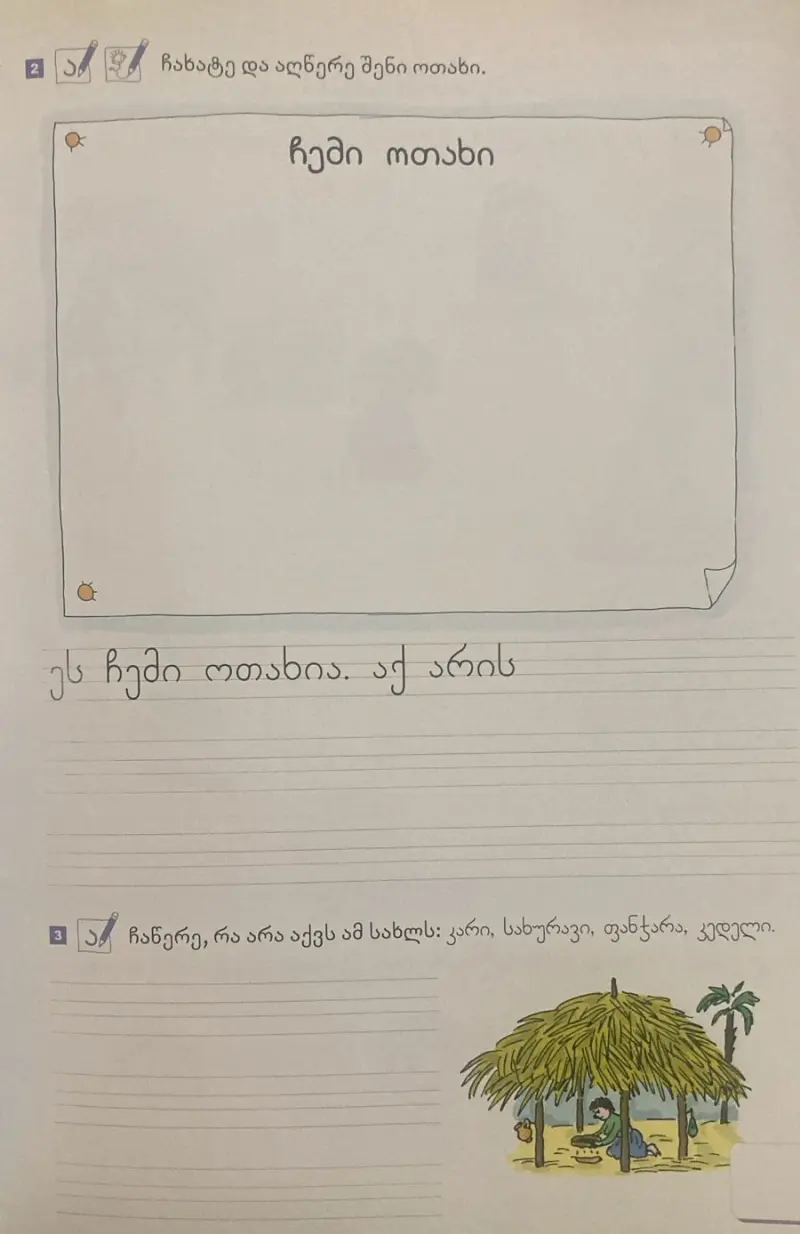 2 ა ჩახატე და აღწერე შენი ოთახი.
ჩემი ოთახი
ეს ჩემი ოთახია. აქ არის
3 ა ჩაწერე, რა არა აქვს ამ სახლს: კარი, სახურავი, ფანჯარა, კედელი.